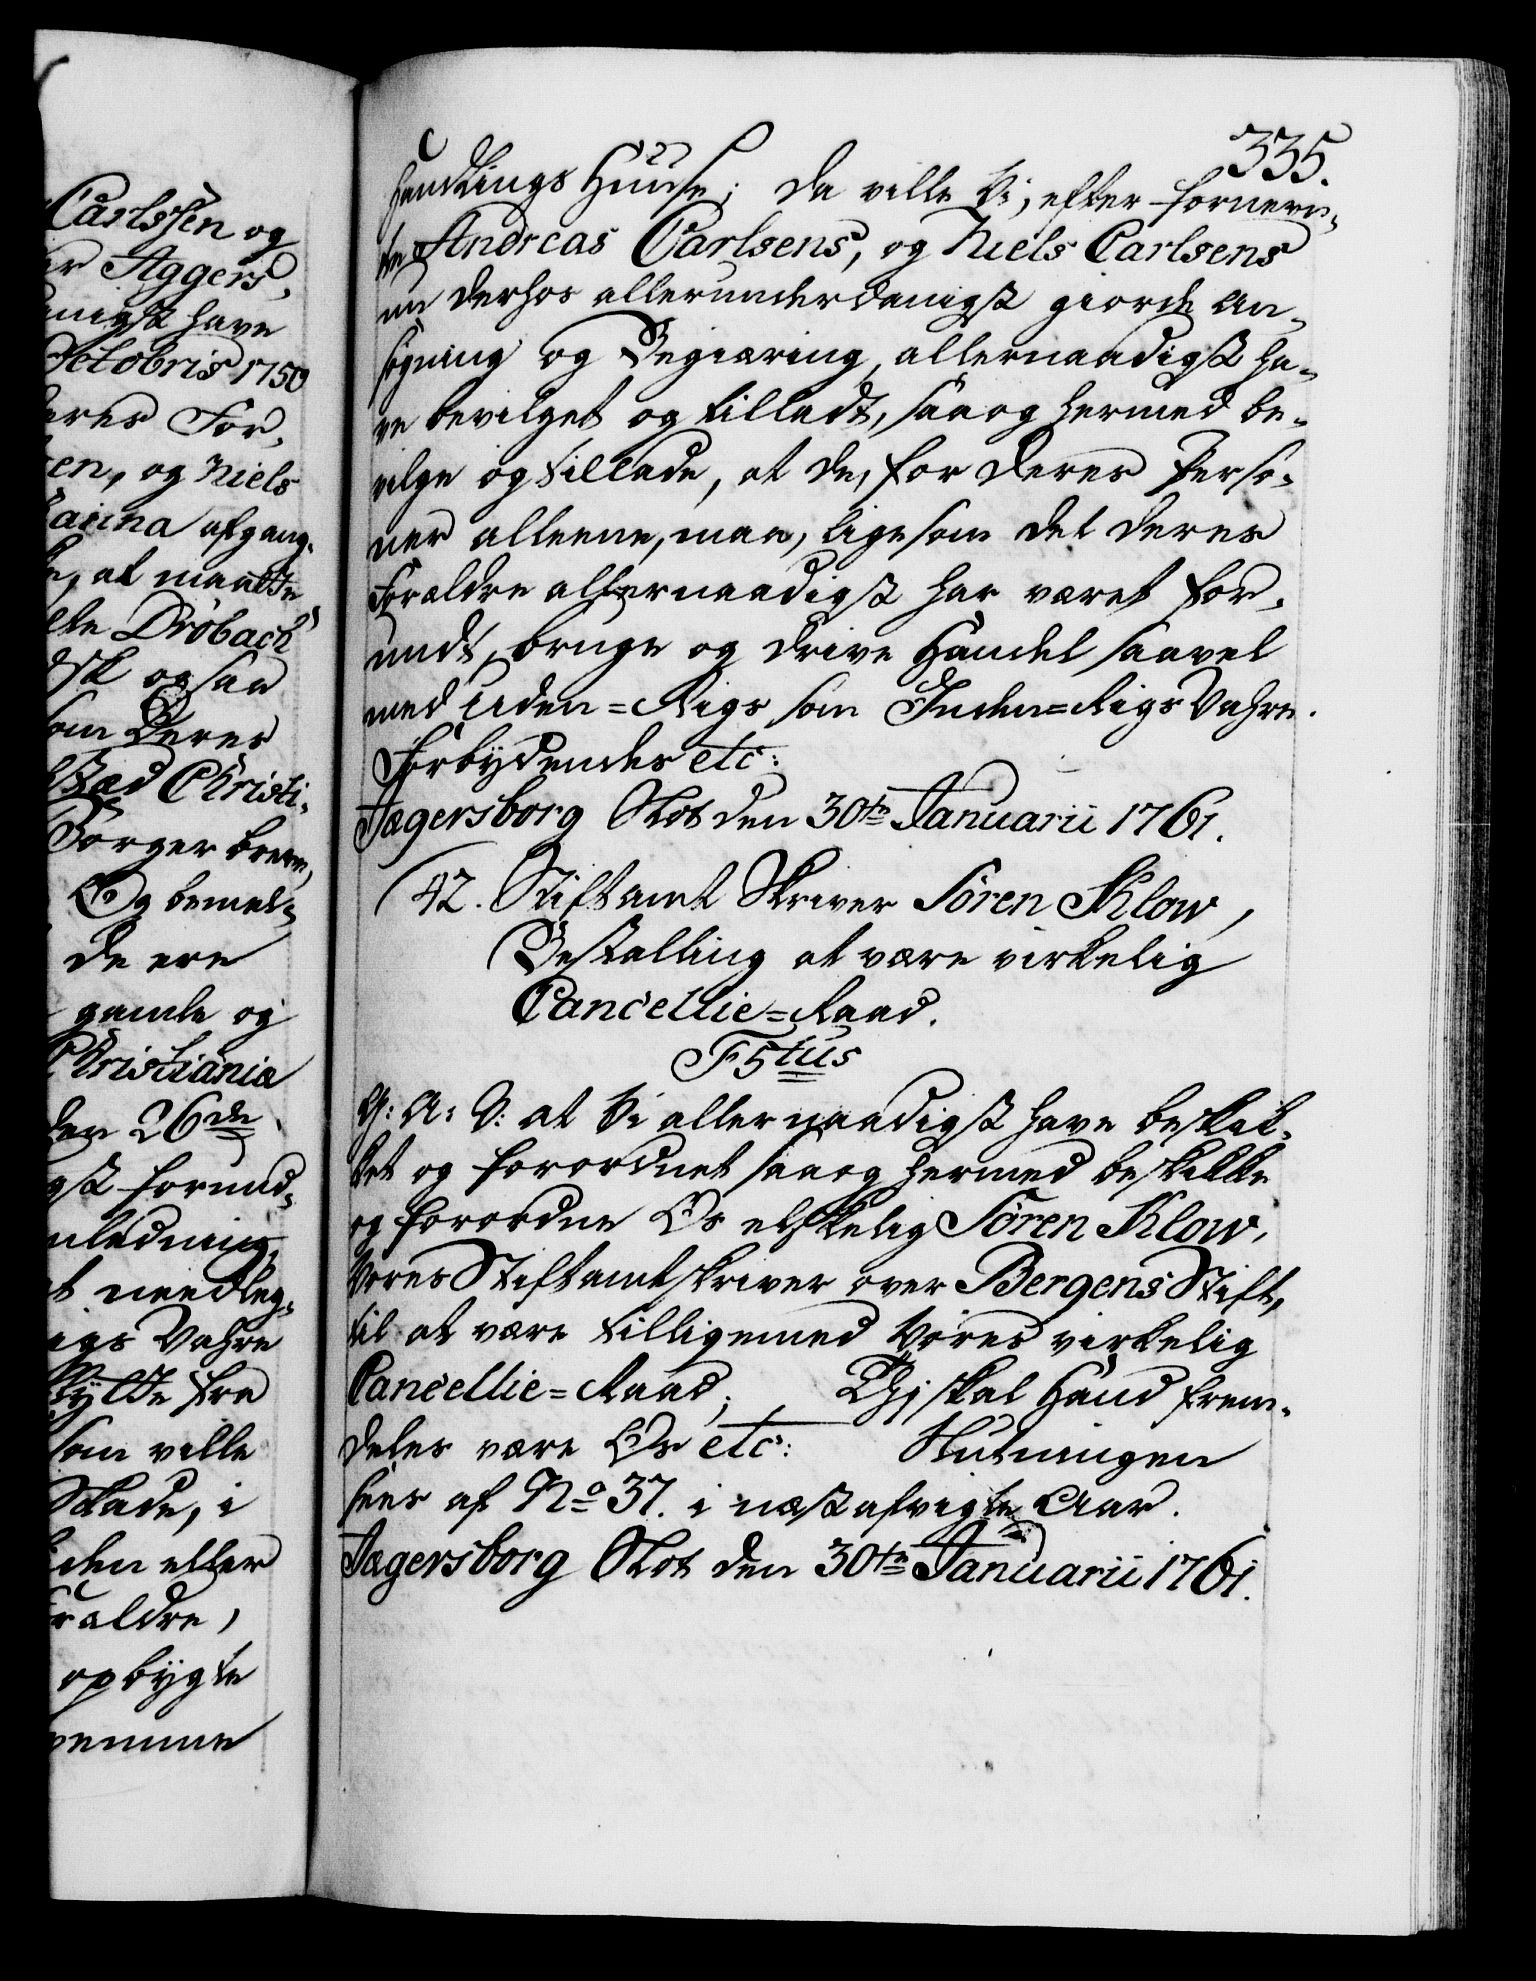 Carlssen og
Aggers,
nigst have
Octobris 1750
deres For-
sen, og Niels
anna afgang-
at maatte
Dröbach
og saa
som Deres
Stæd Christi-
Borger breve,
Og bemel-
de ere
gamle og
Christiania
den 26de
gst forund-
nledning,
t needleg-
igs Vahre
flytte fra
som ville
Skade, i
eller
Forældre,
opbygte
335.
Handlings Huuse; Da ville Vi, efter fornevn-
te Andreas Carlsens, og Niels Carlsens
nu derhos allerunderdanigst giorde An-
søgning og Begiæring, allernaadigst ha-
ve bevilget og tilladt, saa og hermed be-
vilge og tillade, at de, for deres Perso-
ner alleene, maa, ligesom det deres
Forældre allernaadigst har været for-
undt, bruge og drive Handel saavel
med Uden=Rigs som Inden=Rigs Vahre.
Forbydendes etc:
Jægersborg Slot den 30te Januarii 1761.
42. Stiftamt Skriver Sören Klow,
Bestalling at være virkelig
Cancellie=Raad.
F 5tus
G: A: V: at Vi allernaadigst have beskik-
ket og forordnet saa og hermed beskikke
og forordne Os elskelig Sören Klow,
Vores Stiftamtskriver over Bergens Stift,
til at være tilligemed Vores virkelig
Cancellie=Raad; Thj skal Hand frem-
deles være Os etc: Slutningen
sees af No 37. i næstafvigte Aar.
Jægersborg Slot den 30te Januarii 1761.